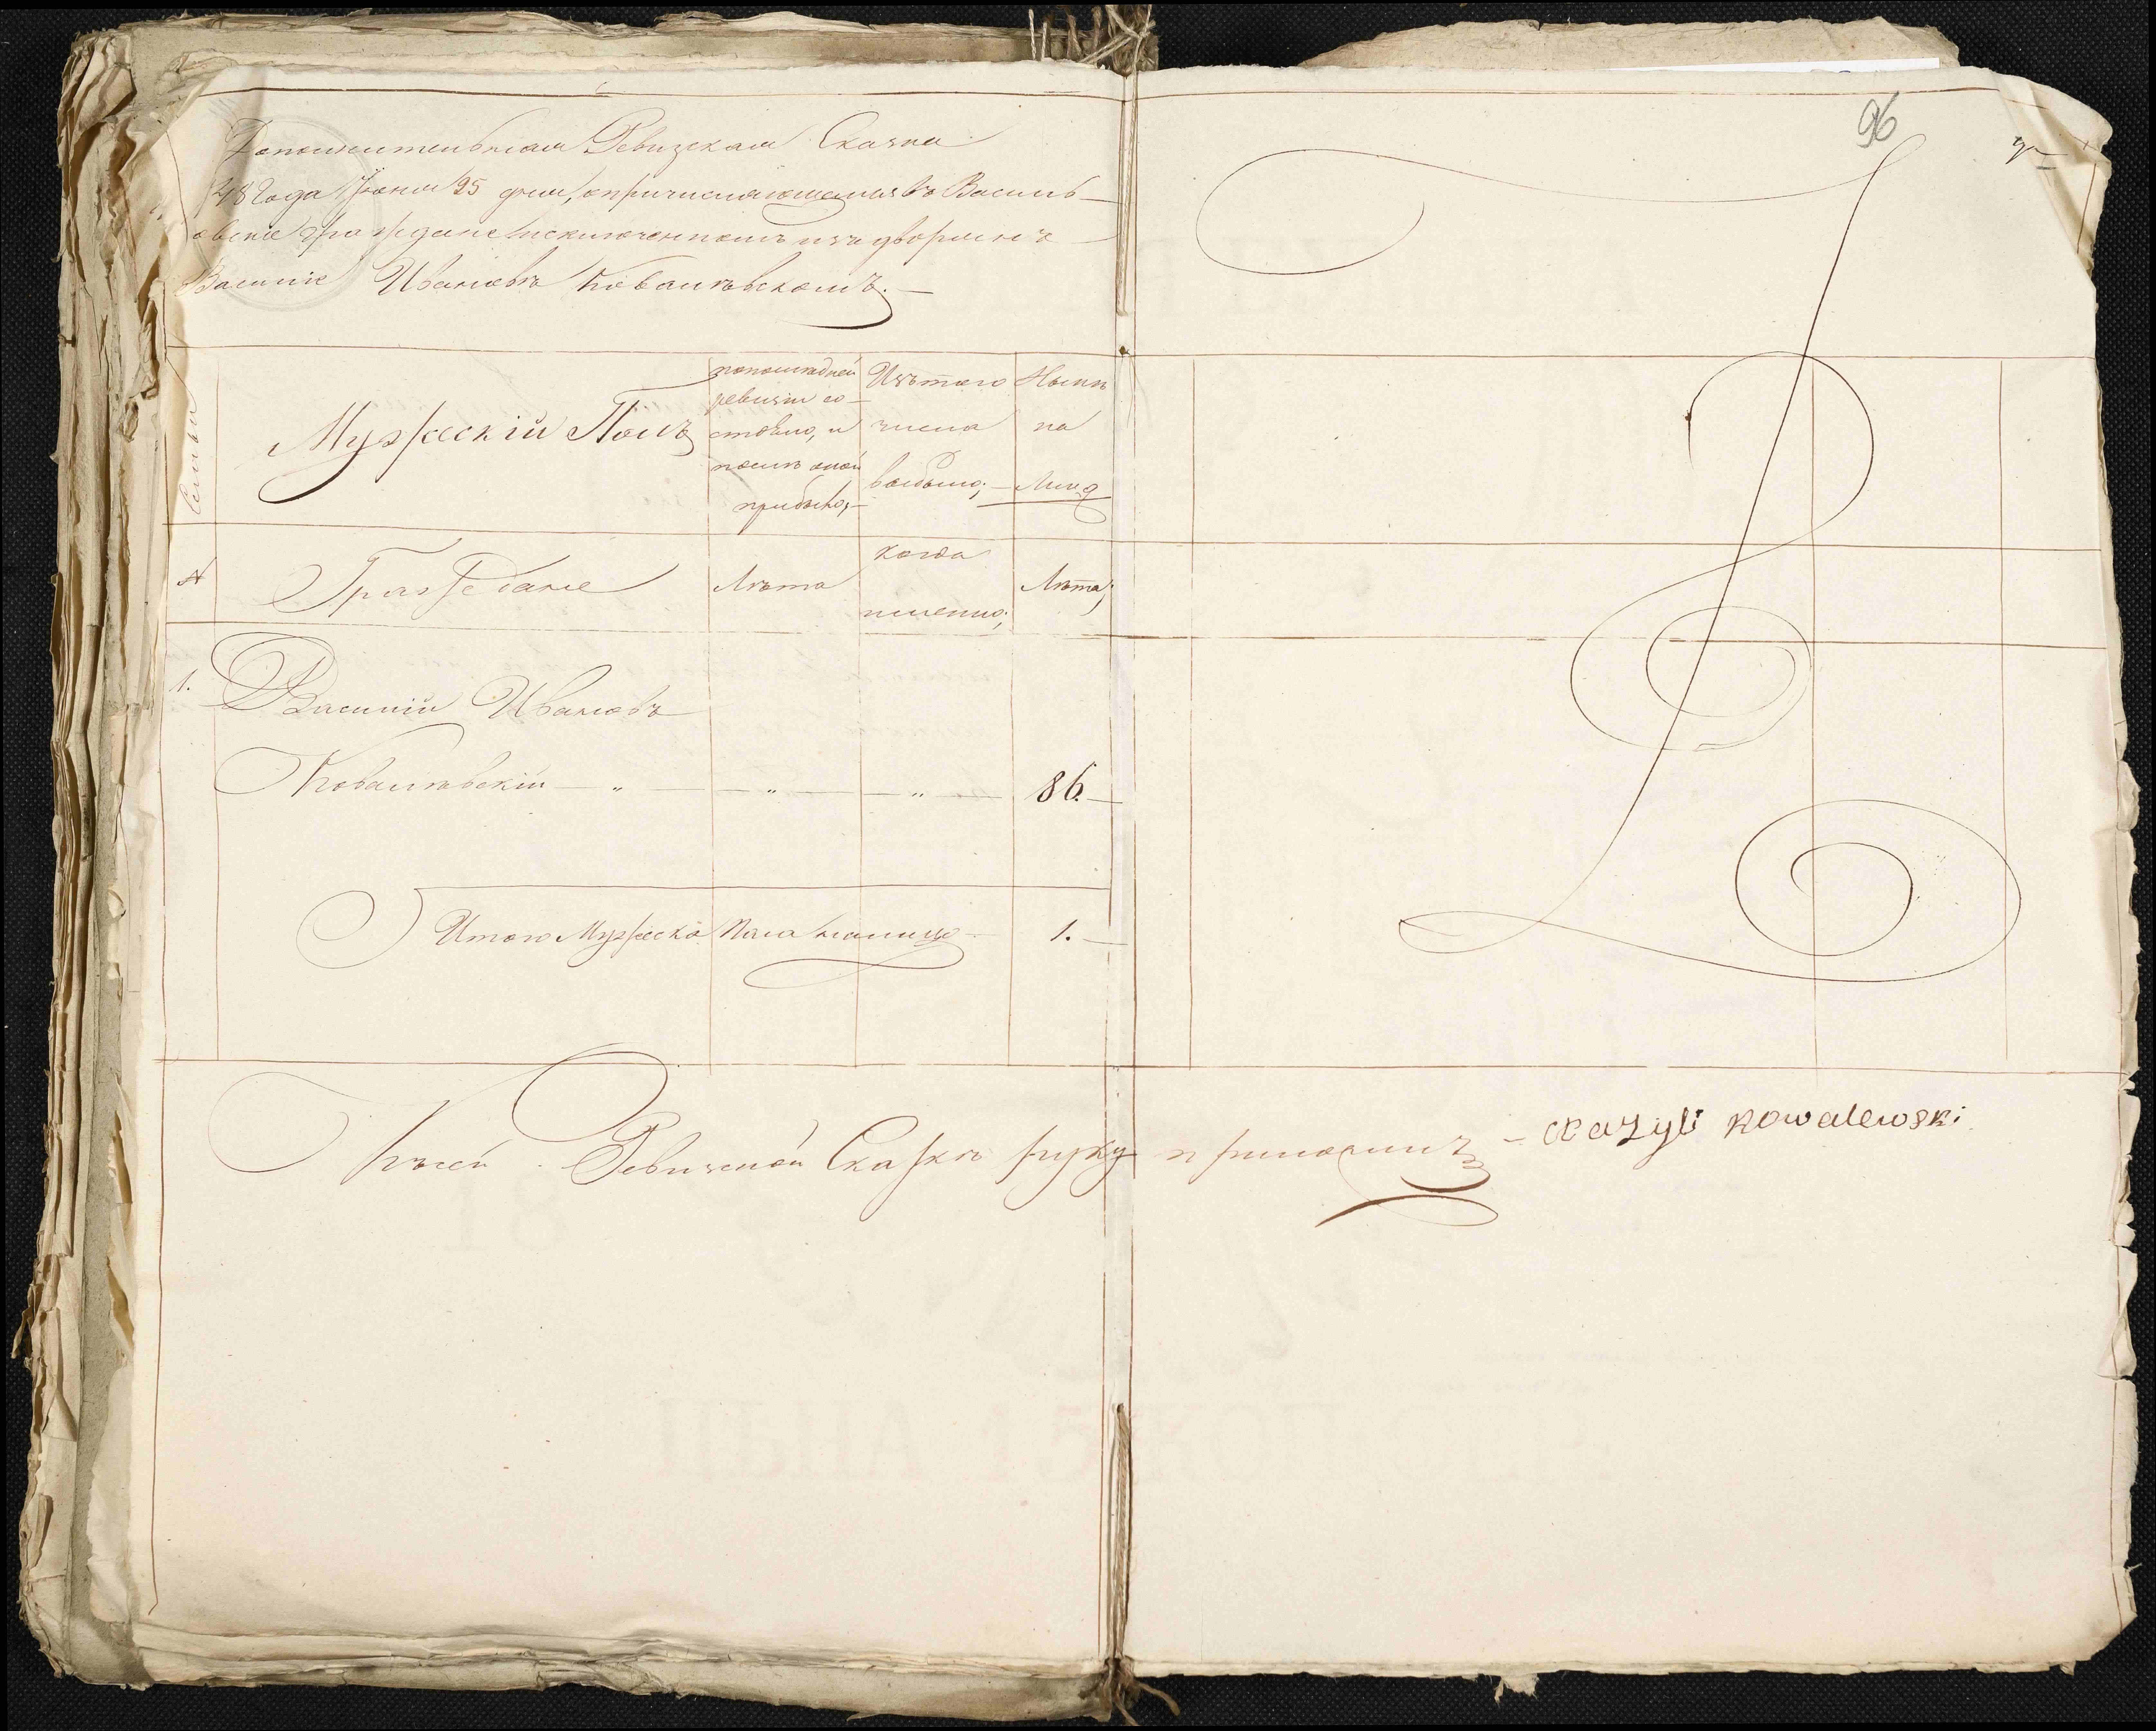 Дополнительная Ревизская Сказка
1848 Года Июня 25 дня, о причисляющемся въ Василь-
овскіе граждане исключенномъ изъ дворянъ
Василіе Ивановѣ Ковалѣвскомъ.
96
Семьи
Мужескій Полъ
по последней
ревизіи со-
стояло, и
послѣ оной
прибыло;
Изъ того
числа
выбыло;
Нынѣ
на
Лицо
№
Граждане
Лѣта
когда
именно;
Лѣта;
1.
Василій Ивановъ
Ковалѣвскій — „ — „ — „ — 86. —
Итого Мужеска Пола налицо — 1. —
К сей Ревизской Сказкѣ руку приложилъ — Wazyli Kowalewski